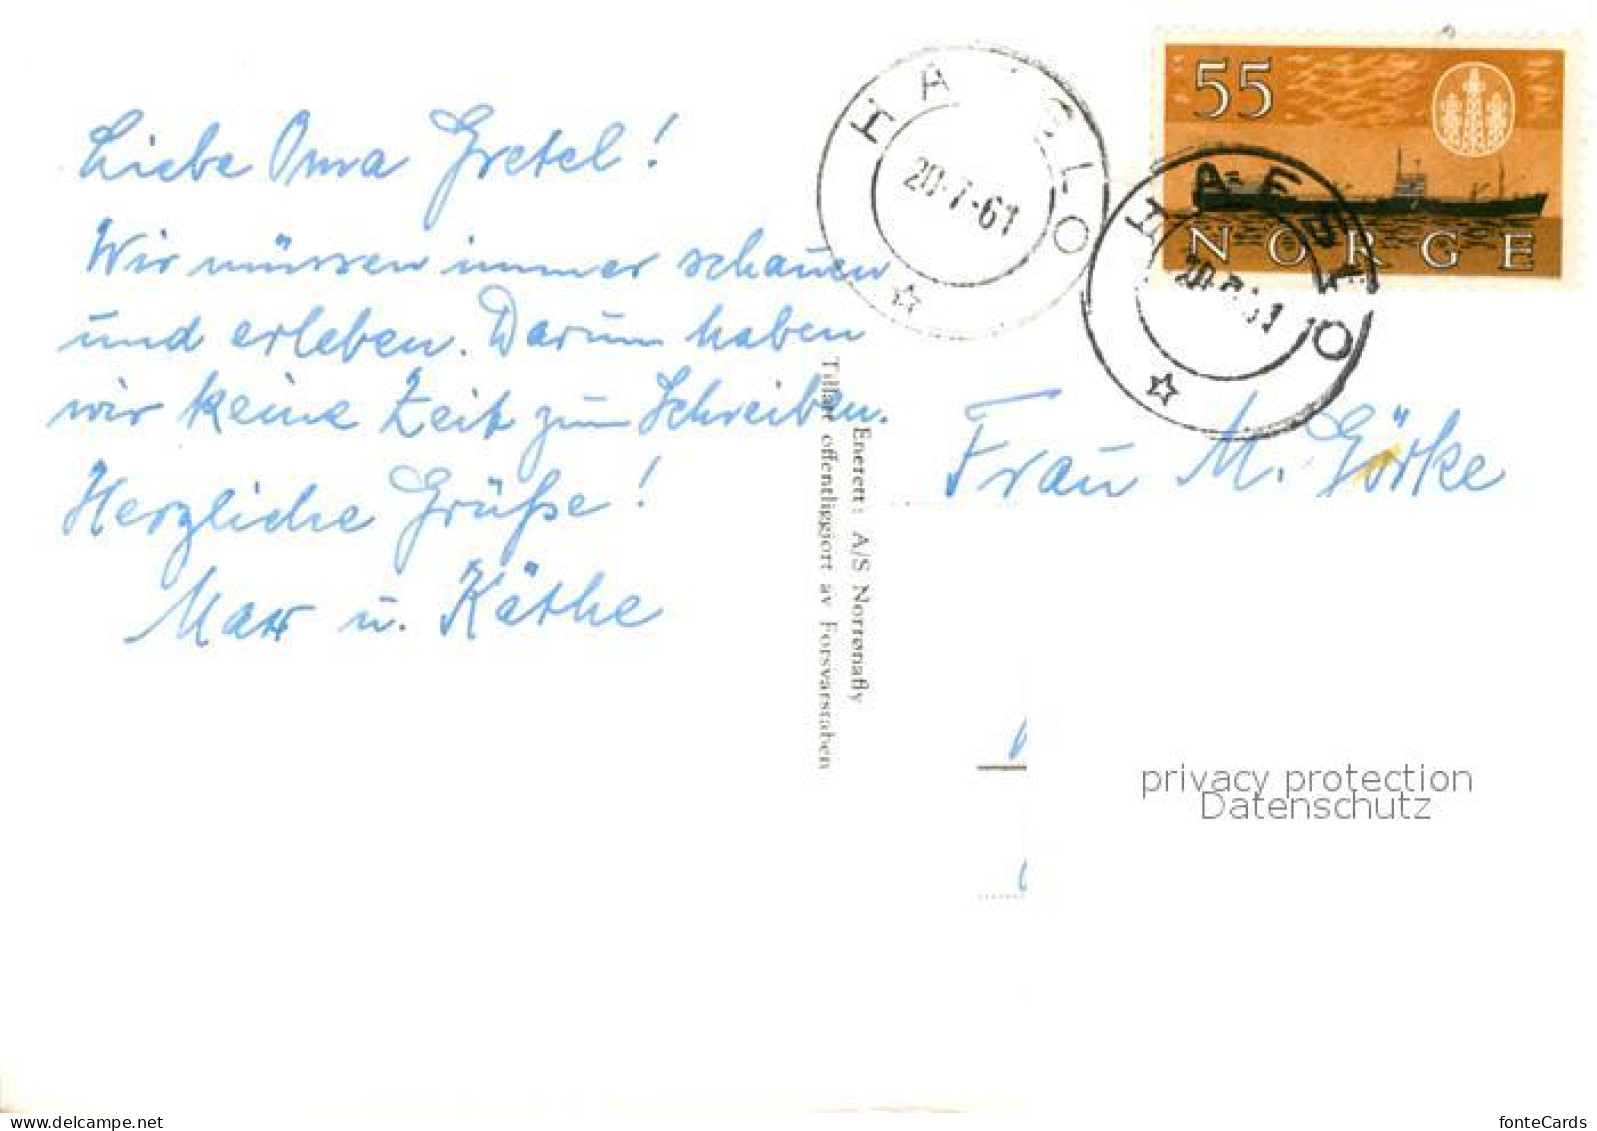 Liebe Oma Gretel!
Wir müssen immer schauen
und erleben. Darum haben
wir keine Zeit zum Schreiben.
Herzliche Grüße!
Max u. Käthe
Enerett: A/S Norrønafly
Tillatt offentliggjort av Forsvarstaben
HA ELO
20-7-61
HAEGELO
55
NORGE
Frau M. Görke
privacy protection
Datenschutz
fonteCards
delcampe.net